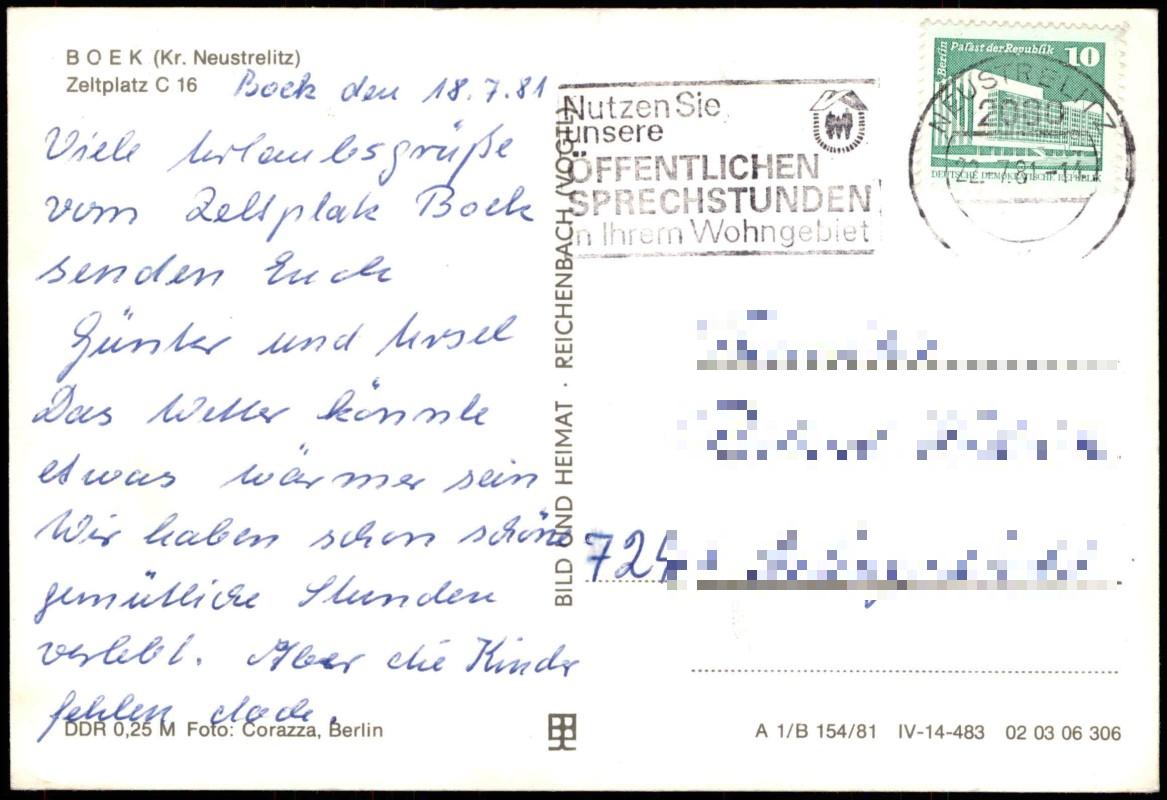 BOEK (Kr. Neustrelitz)
Zeltplatz C 16
Boek den 18.7.81
Viele Urlaubsgrüße
vom Zeltplatz Boek
senden Euch
Günter und Ursel
Das Wetter könnte
etwas wärmer sein
Wir haben schon schöne
gemütliche Stunden
verlebt. Aber die Kinder
fehlen doch.
DDR 0,25 M Foto: Corazza, Berlin
BILD UND HEIMAT · REICHENBACH (VOGTL)
Nutzen Sie
unsere
ÖFFENTLICHEN
SPRECHSTUNDEN
in Ihrem Wohngebiet
Berlin Palast der Republik 10
DEUTSCHE DEMOKRATISCHE REPUBLIK
NEUSTRELITZ
2080
22.-7.81-11
724
A 1/B 154/81 IV-14-483 02 03 06 306